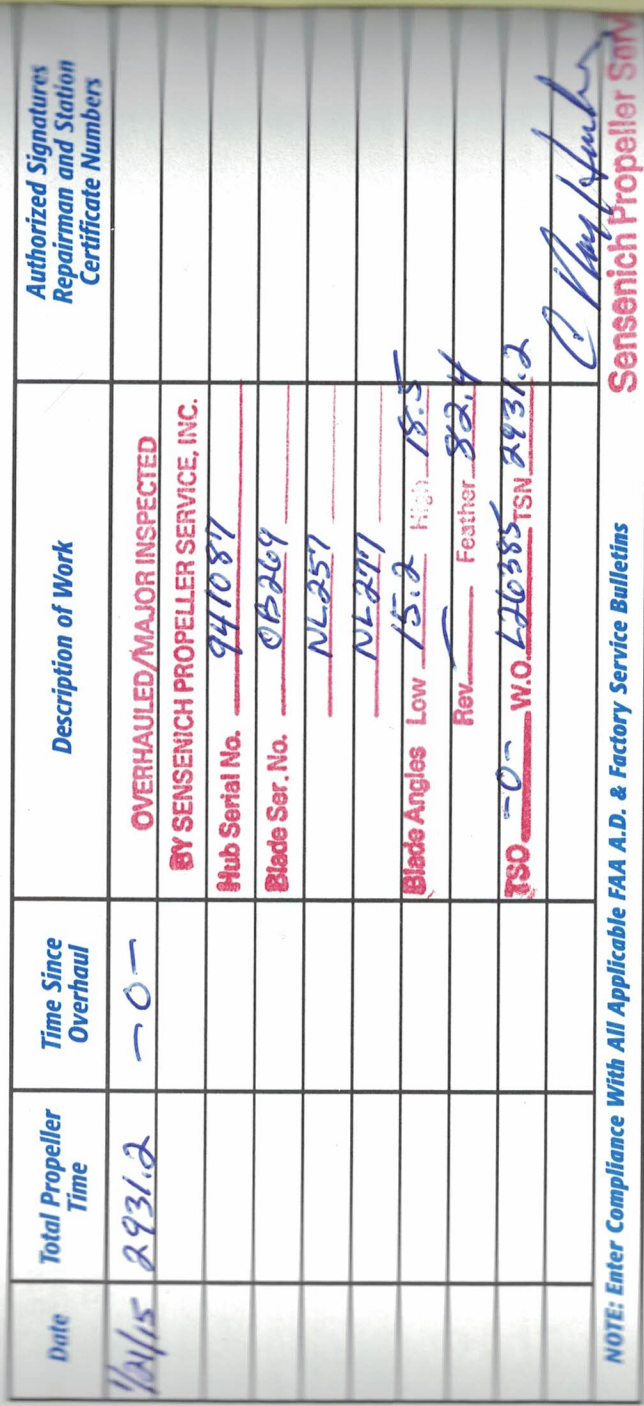 Date Total Propeller Time Time Since Overhaul Description of Work Authorized Signatures Repairman and Station Certificate Numbers
1/21/15 2931.2 -0- OVERHAULED/MAJOR INSPECTED
BY SENSENICH PROPELLER SERVICE, INC.
Hub Serial No. 941087
Blade Ser. No. OB269
NL257
NL277
Blade Angles Low 15.2 High 18.5
Rev. — Feather 82.4
TSO -0- W.O. L26385 TSN 2931.2
NOTE: Enter Compliance With All Applicable FAA A.D. & Factory Service Bulletins
Sensenich Propeller